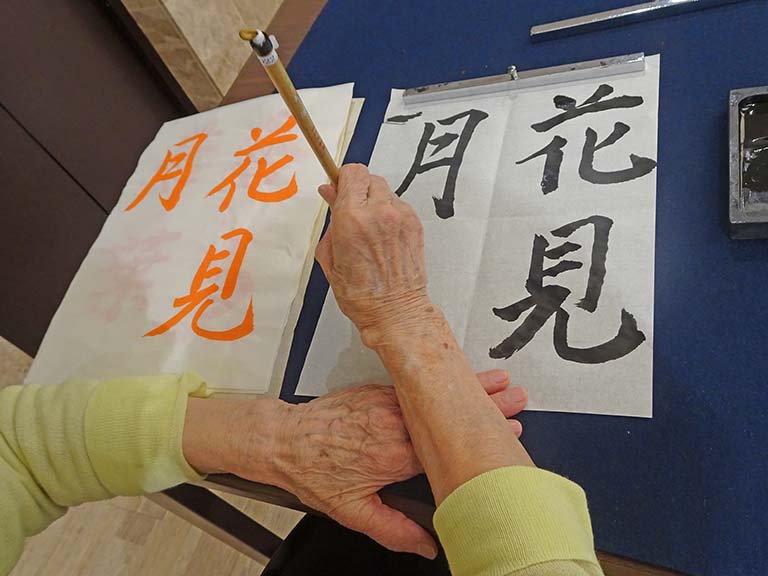 花見
月
花見
月